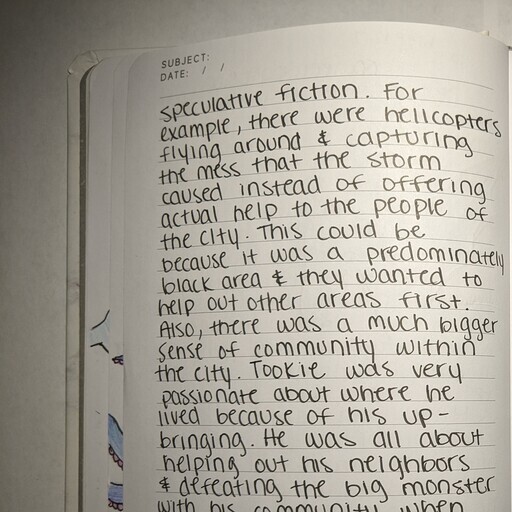 SUBJECT:
DATE: / /
speculative fiction. For
example, there were helicopters
flying around & capturing
the mess that the storm
caused instead of offering
actual help to the people of
the city. This could be
because it was a predominately
black area & they wanted to
help out other areas first.
Also, there was a much bigger
sense of community within
the city. Tookie was very
passionate about where he
lived because of his up-
bringing. He was all about
helping out his neighbors
& defeating the big monster
with his community when